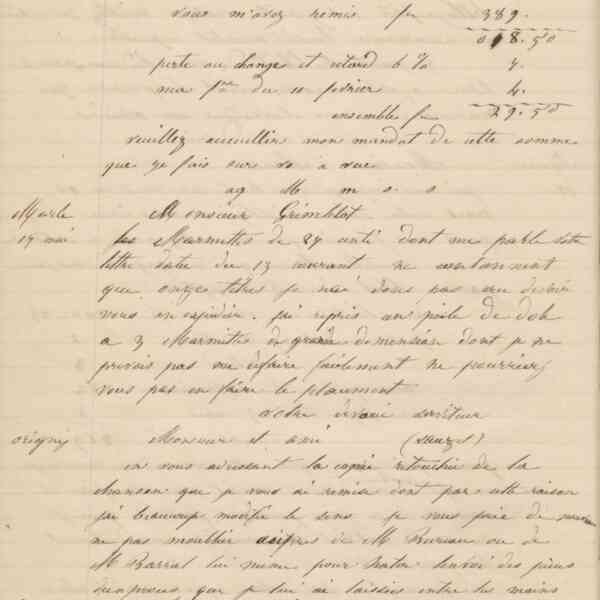 vous m'avez remis fr 389.
018.50
perte au change et retard 6 % 7.
ma fre du 10 février 4.
ensemble fr 29.50
veuillez accueillir mon mandat de cette somme
que je fais sur vo à vue
ag M m s. s
Marle Monsieur Grimblot
17 mai les Marmittes de 27 centi dont me parle votre
lettre datée du 13 courant ne contiennent
que onze litres je n'ai donc pas cru devoir
vous en expédier. j'ai repris un poile de dob
a 3 Marmittes de grande dimension dont je ne
prevois pas me défaire facilement ne pourriez
vous pas en faire le placement
votre dévoué serviteur
origny Monsieur et ami (sauzet)
en vous adressant la copie retouchée de la
chanson que je vous ai remise dont par cette raison
j'ai beaucoup modifié le sens je vous prie de
ne pas m'oublier auprès de M Bureau ou de
M Barral lui meme pour hater l'envoi des pieces
que je lui ai laissées entre les mains